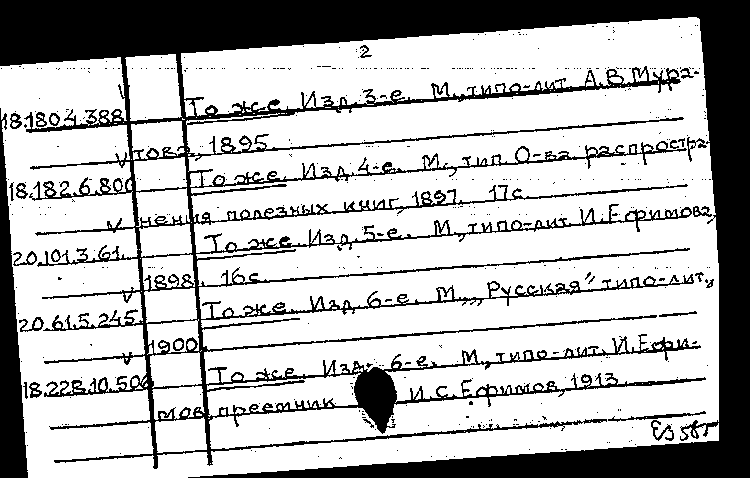 2
18.180.4.388 То же. Изд. 3-е. М., типо-лит. А.В. Мура-
това, 1895.
18.182.6.800 То же. Изд. 4-е. М., тип. О-ва распростра-
нения полезных книг, 1897. 17с.
20.101.3.61. То же. Изд. 5-е. М., типо-лит. И. Ефимова,
1898. 16с.
20.61.5.245 То же. Изд. 6-е. М., „Русская" типо-лит.,
1900.
18.228.10.506 То же. Изд. 6-е. М., типо-лит. И. Ефи-
мов, преемник И.С. Ефимов, 1913.